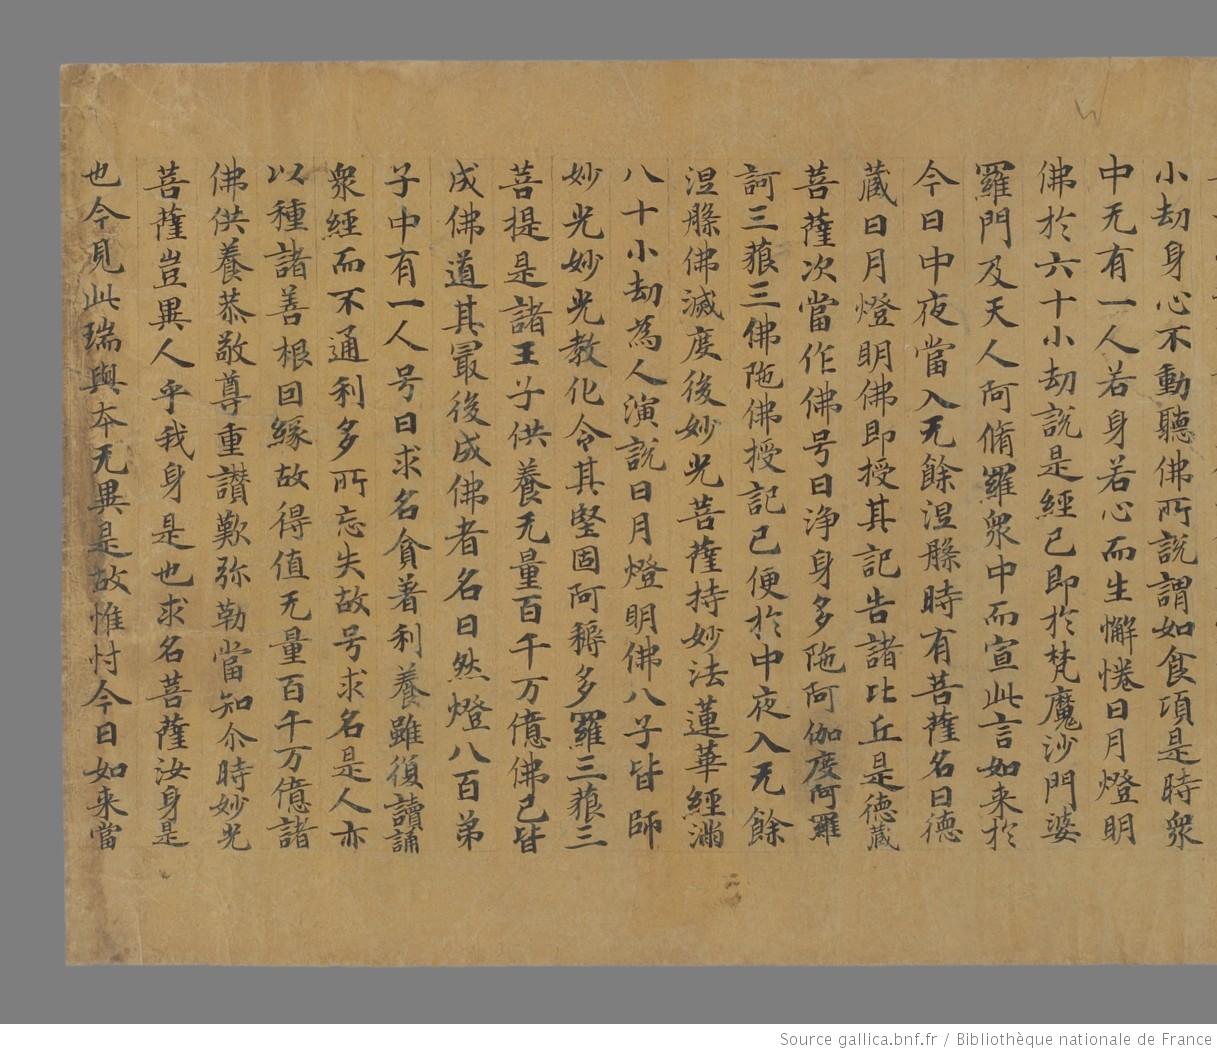 小劫身心不動聽佛所說謂如食項是時衆
中无有一人若身若心而生懈惓日月燈明
佛於六十小劫說是經已即於梵魔沙門婆
羅門及天人阿脩羅衆中而宣此言如来於
今日中夜當入无餘涅槃時有菩薩名曰德
藏日月燈明佛即授其記告諸比丘是德藏
菩薩次當作佛号曰淨身多陁阿伽度阿羅
訶三藐三佛陁佛授記已便於中夜入无餘
涅槃佛滅度後妙光菩薩持妙法蓮華經滿
八十小劫為人演說日月燈明佛八子皆師
妙光妙光教化令其堅固阿耨多羅三藐三
菩提是諸王子供養无量百千万億佛已皆
成佛道其冣後成佛者名曰然燈八百弟
子中有一人号曰求名貪著利養雖復讀誦
衆經而不通利多所忘失故号求名是人亦
以種諸善根因緣故得值无量百千万億諸
佛供養恭敬尊重讃歎弥勒當知尒時妙光
菩薩豈異人乎我身是也求名菩薩汝身是
也今見此瑞與本无異是故惟忖今日如来當
Source gallica.bnf.fr / Bibliothèque nationale de France